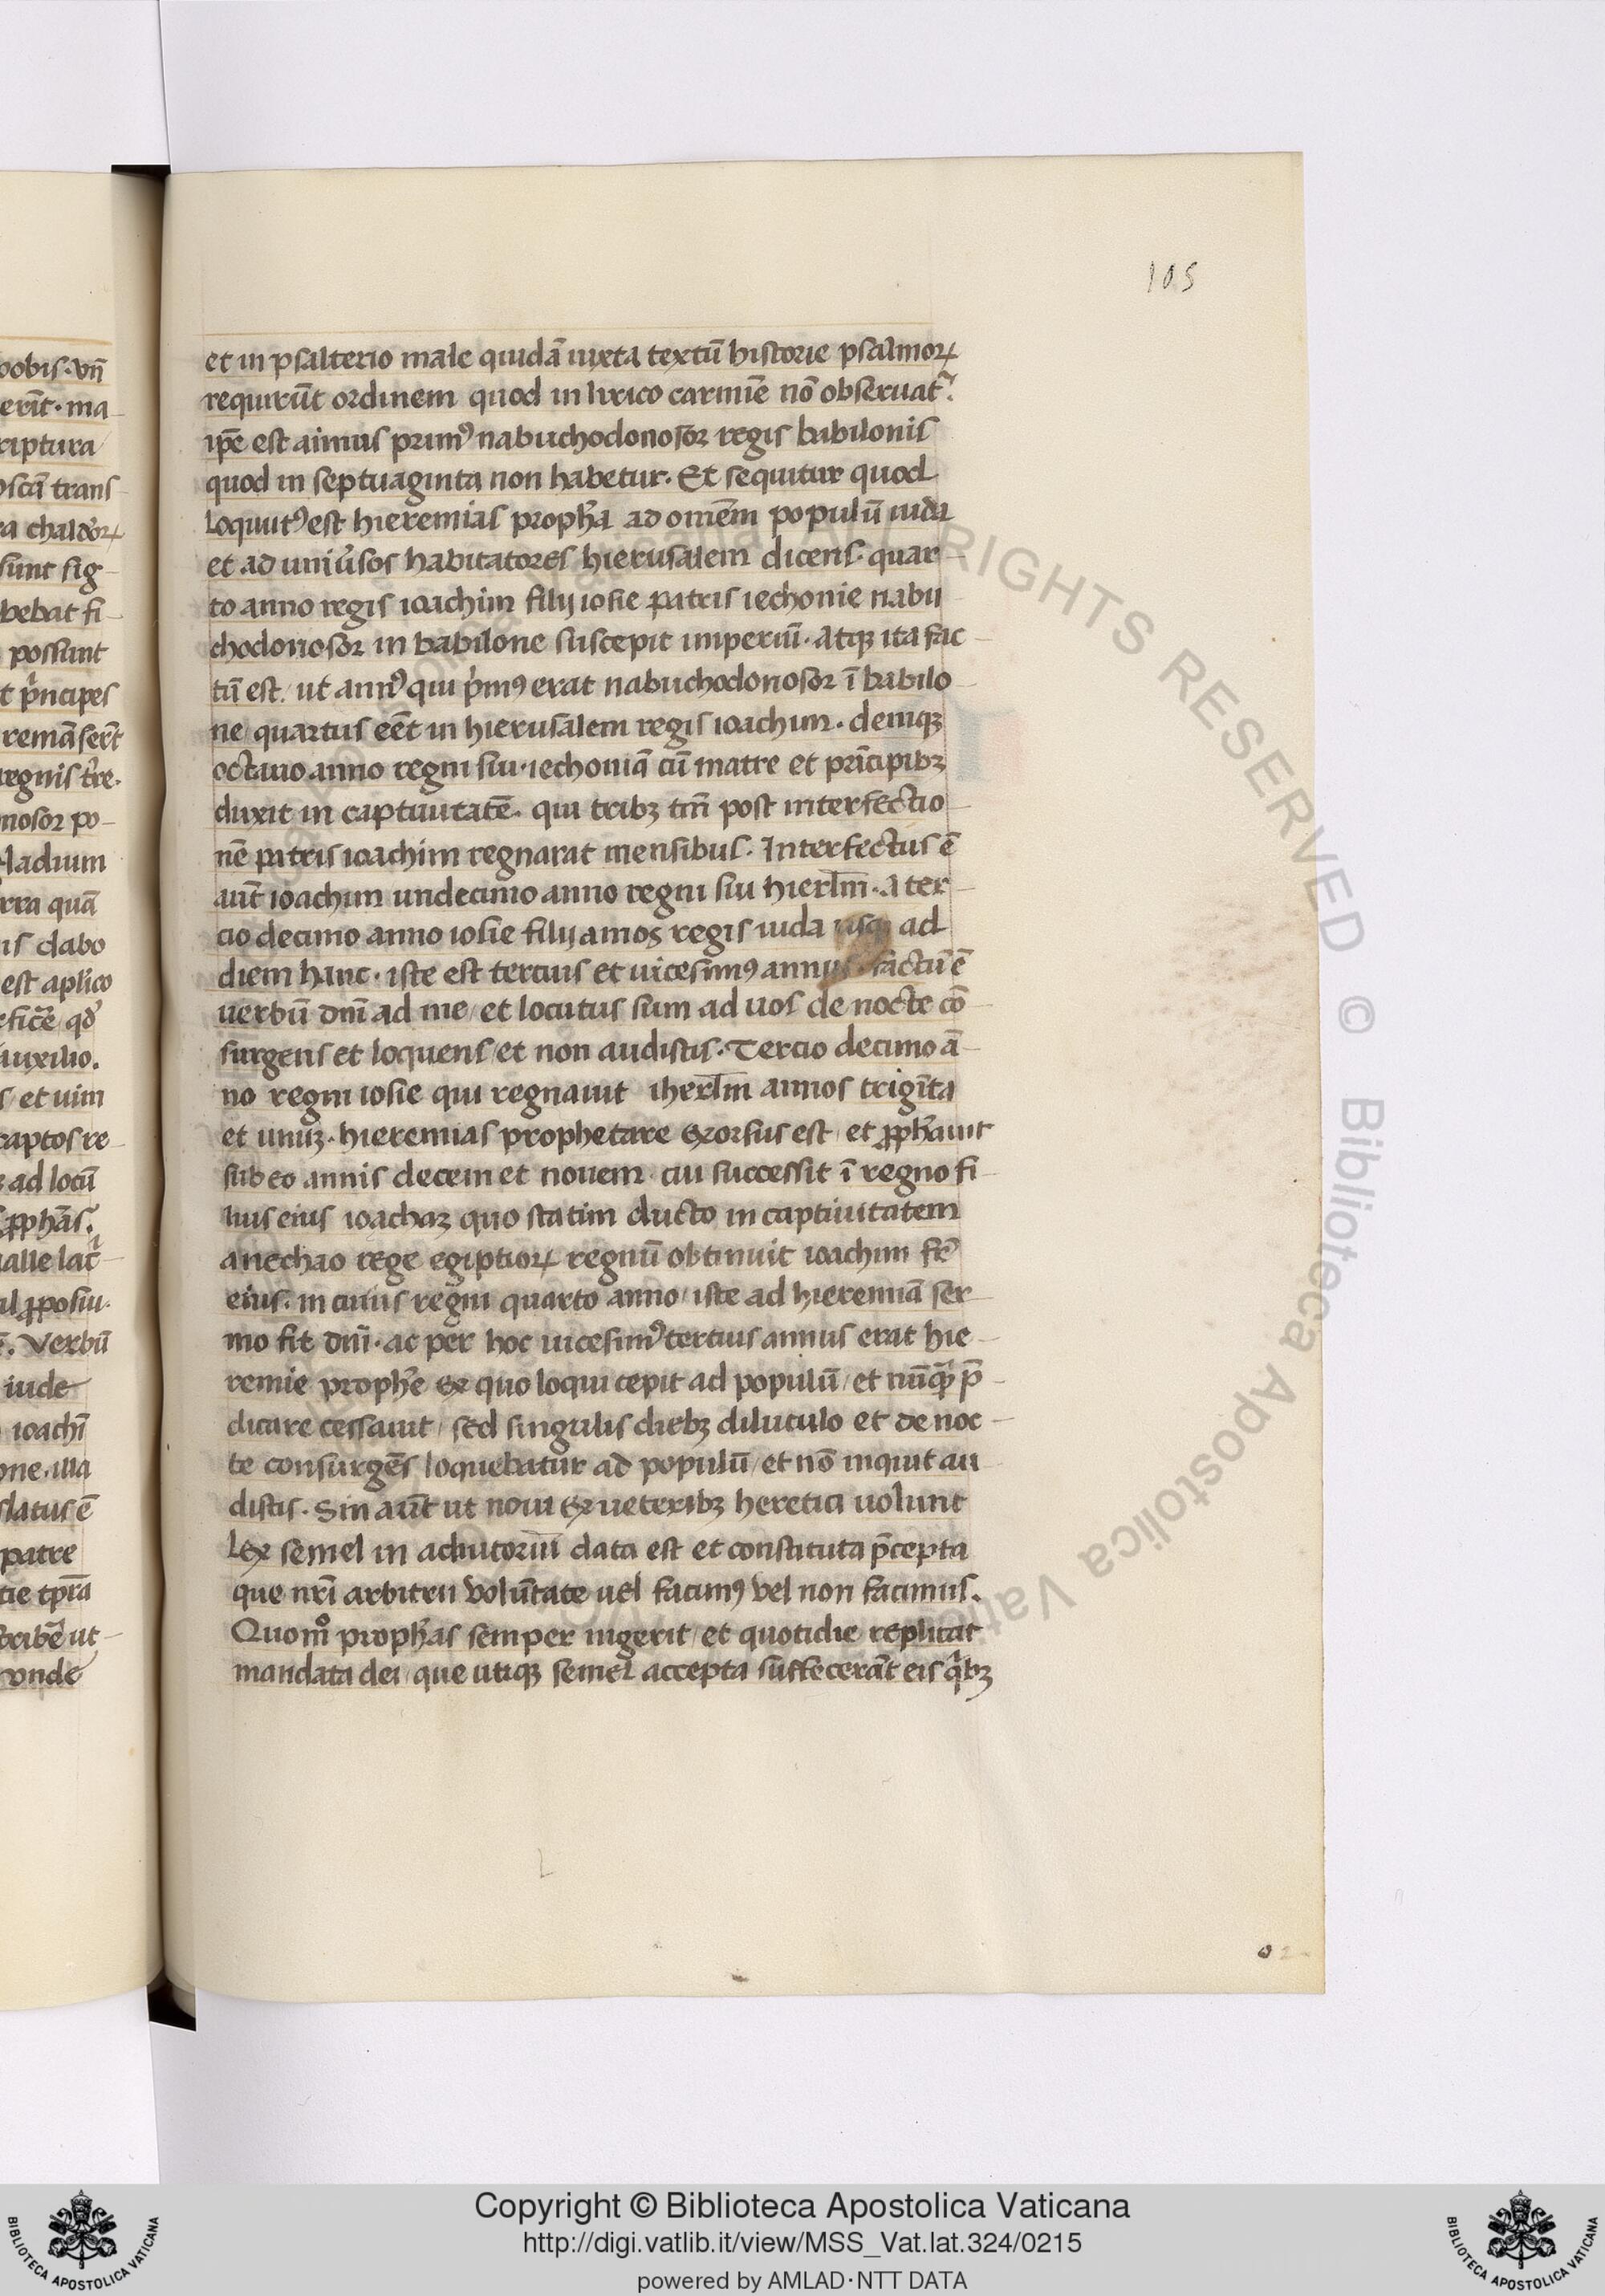 105
et in psalterio male quidā iuxta textū historie psalmoꝝ
requirūt ordinem quod in lirico carmīe nō obseruat᷑.
ip̄e est annus primꝰ nabuchodonosor regis babilonis
quod in septuaginta non habetur. Et sequitur quod
loquutꝰ est hieremias proph̄a ad omēm populū iuda
et ad uniūsos habitatores hierusalem dicens. quar-
to anno regis ioachim filij iosie patris iechonie nabu
chodonosor in babilone suscepit imperiū. atqꝫ ita fac-
tū est. ut annꝰ qui p̄mꝰ erat nabuchodonosor ī babilo-
ne quartus eēt in hierusalem regis ioachim. deniqꝫ
octauo anno regni sui. iechoniā cū matre et prīcipibꝫ
duxit in captiuitatē. qui tribꝫ tm̄ post interfectio-
nē patris ioachim regnarat mensibus. Interfectus ē
aūt ioachim undecimo anno regni sui hierl̄m. A ter-
cio decimo anno iosie filij amos regis iuda usqꝫ ad
diem hanc. iste est tercius et uicesimꝰ annus. factū ē
uerbū dn̄i ad me/ et locutus sum ad uos de nocte cō-
surgens et loquens/ et non audistis. Tercio decimo ā-
no regni iosie qui regnauit iherl̄m annos trigīta
et unūꝫ. hieremias prophetare exorsus est/ et ꝓph̄auit
sub eo annis decem et nouem. cui successit ī regno fi-
lius eius ioachaz quo statim ducto in captiuitatem
a nechao rege egiptioꝝ regnū obtinuit ioachim fr̄
eius. in cuius regni quarto anno/ iste ad hieremiā ser-
mo fit dn̄i. ac per hoc uicesimꝰ tertius annus erat hie-
remie proph̄e ex quo loqui cepit ad populū/ et nūqꝫ p̄-
dicare cessauit/ sed singulis diebꝫ diluculo et de noc-
te consurgēs loquebatur ad populū/ et nō inquit au-
distis. Sin aūt ut noui ex ueteribꝫ heretici uolunt
Lex semel in adiutoriū data est et constituta p̄cepta
que nr̄i arbitrii volūtate uel facimꝰ vel non facimus.
Quom̊ proph̄as semper ingerit/ et quotidie replicat
mandata dei/ que utiqꝫ semel accepta suffecerāt eis q̄bꝫ
ALL RIGHTS RESERVED © Biblioteca Apostolica Vaticana
Copyright © Biblioteca Apostolica Vaticana
http://digi.vatlib.it/view/MSS_Vat.lat.324/0215
powered by AMLAD·NTT DATA
BIBLIOTECA APOSTOLICA VATICANA
BIBLIOTECA APOSTOLICA VATICANA